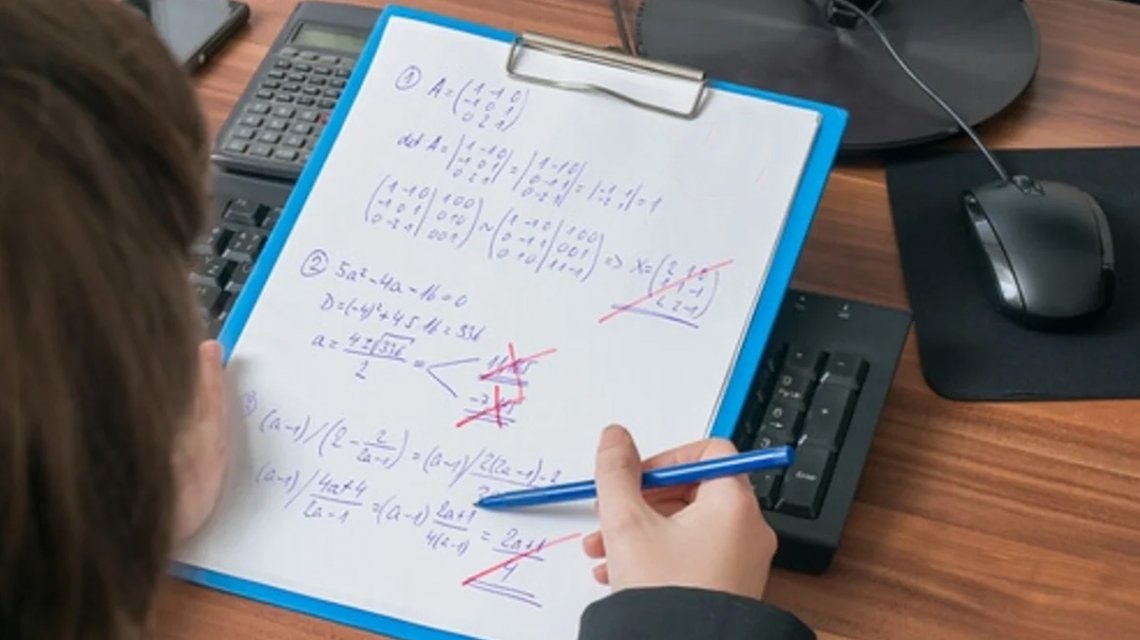 ① A = (1 -1 0
-1 0 1
0 2 1)
det A = |1 -1 0
-1 0 1
0 2 1| = |1 -1 0
0 -1 1
0 -2 1| = |-1 1
-2 1| = 1
(1 -1 0 | 1 0 0
-1 0 1 | 0 1 0
0 -2 1 | 0 0 1) ~ (1 -1 0 | 1 0 0
0 -1 1 | 0 0 1
0 1 0 | 1 1 -1) => X =
② 5a² - 4a - 16 = 0
D = (-4)² + 4·5·16 = 336
a = (4 ± √336)/2 =
③
(a-1) / (2 - 2/(2a-1)) = (a-1) / 2(2a-1)-2
(a-1) / (4a+4)/(2a-1) = (a-1) (2a+1)/4(a-1) = (2a+1)/4